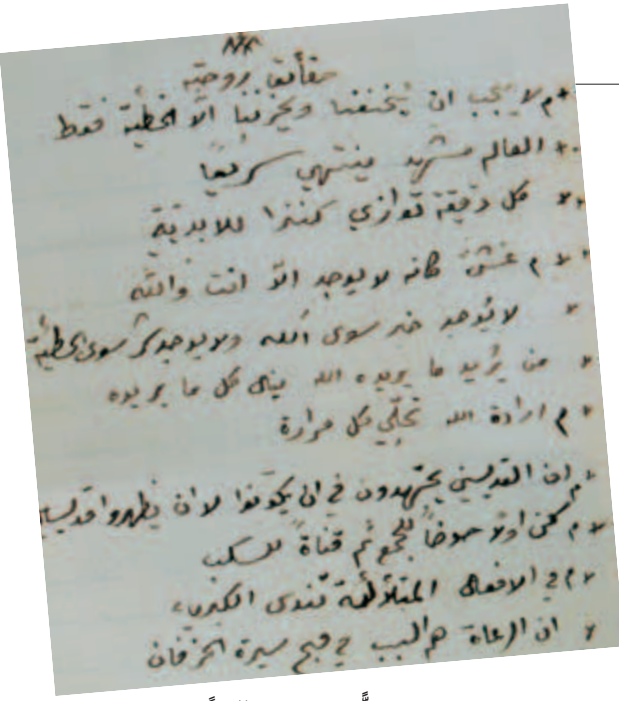 حقائق روحية
لا يجب ان يخيفنا ويحزننا الّا الخطية فقط
العالم مشهد ينتهي سريعًا
كل دقيقة توازي كنزا للابدية
عش كانه لا يوجد الّا انت والله
لا يُوجد خير سوى الله ولا يوجد شر سوى الخطية
من يُريد ما يريده الله ينال كل ما يريده
ارادة الله تحلّي كل مرارة
ان القديسين يجتهدون في ان يكونوا لا ان يظهروا قديسين
كن اولًا حوضًا للجمع ثم قناةً للسكب
في الافعال المتلألئة تندى الكبرياء
ان الرعاة هم السبب في قبح سيرة الخرفان